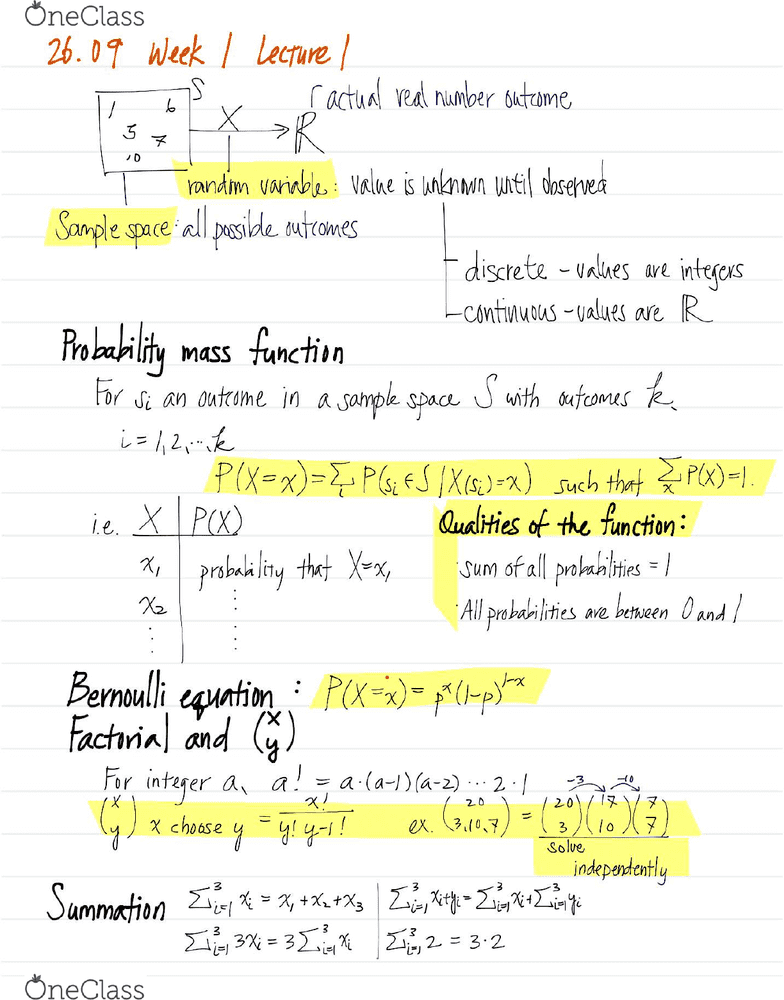 OneClass
26.09 Week 1 Lecture 1
S
1 6
5 7
10
X
ℝ
actual real number outcome
random variable: value is unknown until observed
Sample space: all possible outcomes
discrete - values are integers
continuous - values are ℝ
Probability mass function
For sᵢ an outcome in a sample space S with outcomes k,
i = 1, 2, ..., k
P(X=x) = Σᵢ P(sᵢ ∈ S | X(sᵢ)=x) such that Σₓ P(X)=1.
i.e. X | P(X)
x₁ | probability that X=x₁
x₂ | ⋮
⋮ | ⋮
Qualities of the function:
· sum of all probabilities = 1
· All probabilities are between 0 and 1
Bernoulli equation: P(X=x) = pˣ(1-p)¹⁻ˣ
Factorial and (x y)
For integer a, a! = a·(a-1)(a-2) ... 2·1
(x y) x choose y = x! / y! y-1!
ex. (20 3,10,7) = (20 3)(17 10)(7 7)
-3 -10
solve
independently
Summation Σ³ᵢ₌₁ xᵢ = x₁+x₂+x₃ | Σ³ᵢ₌₁ xᵢ+yᵢ = Σ³ᵢ₌₁ xᵢ + Σ³ᵢ₌₁ yᵢ
Σ³ᵢ₌₁ 3xᵢ = 3 Σ³ᵢ₌₁ xᵢ | Σ³ᵢ₌₁ 2 = 3·2
OneClass